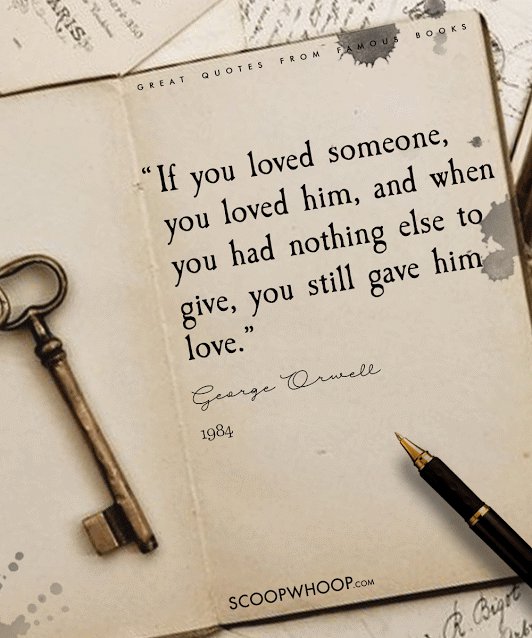 PARIS
GREAT QUOTES FROM FAMOUS BOOKS
“If you loved someone,
you loved him, and when
you had nothing else to
give, you still gave him
love.”
George Orwell
1984
SCOOPWHOOP.COM
R. Bigot